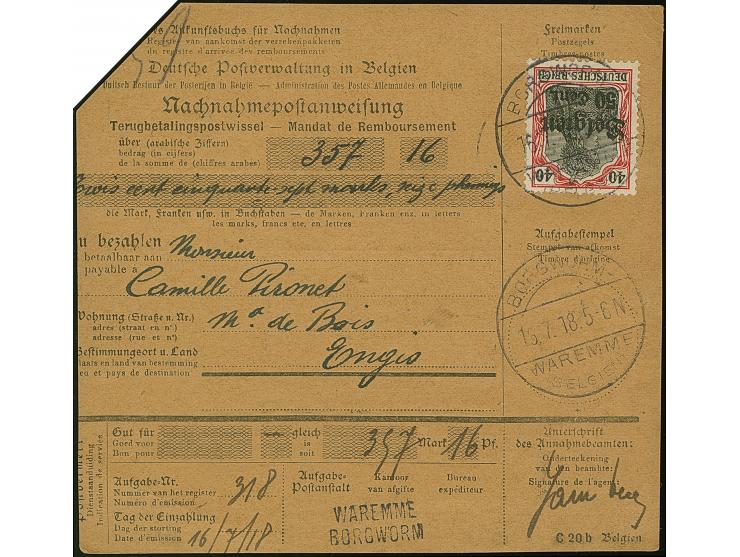 des Ankunftsbuchs für Nachnahmen
Register van aankomst der verrekenpakketten
du registre d'arrivée des remboursements
Deutsche Postverwaltung in Belgien
Duitsch Bestuur der Posterijen in België — Administration des Postes Allemandes en Belgique
Nachnahmepostanweisung
Terugbetalingspostwissel — Mandat de Remboursement
über (arabische Ziffern)
bedrag (in cijfers)
de la somme de (chiffres arabes)
357 16
trois cent cinquante-sept marks, seize phennigs
die Mark, Franken usw. in Buchstaben — de Marken, Franken enz. in letters
les marks, francs etc. en lettres
zu bezahlen
betaalbaar aan
payable à
Monsieur
Camille Pironet
Wohnung (Straße u. Nr.)
adres (straat en nr.)
adresse (rue et nº)
Md de Bois
Bestimmungsort u. Land
plaats en land van bestemming
lieu et pays de destination
Engis
Freimarken
Postzegels
Timbres-postes
DEUTSCHES REICH
Belgien
50 Cent.
40 40
Aufgabestempel
Stempel van afkomst
Timbre d'origine
BORGWORM-
16.7.18.5-6N
WAREMME
BELGIEN
Gut für
Goed voor
Bon pour
— gleich
is
soit
357 Mark 16 Pf.
Dienstaanduiding
Indication de service
Aufgabe-Nr.
Nummer van het register
Numéro d'émission
318
Tag der Einzahlung
Dag der storting
Date d'émission
16/7/18
Aufgabe-
Postanstalt
Kantoor
van afgifte
Bureau
expéditeur
WAREMME
BORGWORM
Unterschrift
des Annahmebeamten:
Onderteekening
van den beambte:
Signature de l'agent:
C 20 b Belgien